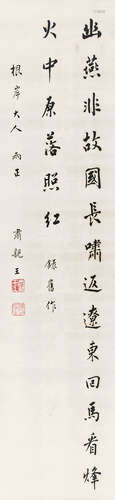 幽燕非故國長嘯返遼東回馬看烽
火中原落照紅 錄舊作
根岸大人雨正
肅親王